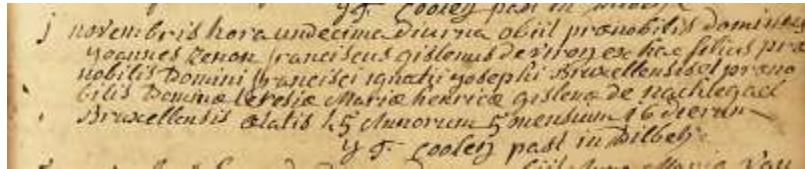 y G. Cooleg past in Wilbeke
j novembris hora undecima diurna obiit prænobilis dominus
Yoannes Zenon franciscus gislenus de viron ex hac filius præ
nobilis Domini francisci ignatii yosephi Bruxellensis et præno
bilis Dominæ teresiæ Mariæ henricæ gislenæ de nachtegael
Bruxellensis ætatis 5 Annorum 5 mensium 16 dierum
y G. Cooleg past in Dilbek
obiit Anna Maria Van